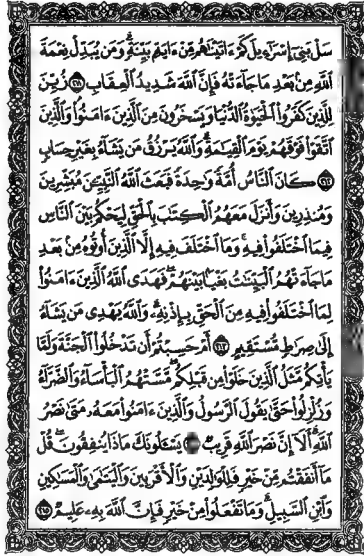 سَلْ بَنِىٓ إِسْرَٰٓءِيلَ كَمْ ءَاتَيْنَٰهُم مِّنْ ءَايَةٍۭ بَيِّنَةٍ ۗ وَمَن يُبَدِّلْ نِعْمَةَ
ٱللَّهِ مِنۢ بَعْدِ مَا جَآءَتْهُ فَإِنَّ ٱللَّهَ شَدِيدُ ٱلْعِقَابِ ٢١١ زُيِّنَ
لِلَّذِينَ كَفَرُوا۟ ٱلْحَيَوٰةُ ٱلدُّنْيَا وَيَسْخَرُونَ مِنَ ٱلَّذِينَ ءَامَنُوا۟ ۘ وَٱلَّذِينَ
ٱتَّقَوْا۟ فَوْقَهُمْ يَوْمَ ٱلْقِيَٰمَةِ ۗ وَٱللَّهُ يَرْزُقُ مَن يَشَآءُ بِغَيْرِ حِسَابٍ
٢١٢ كَانَ ٱلنَّاسُ أُمَّةً وَٰحِدَةً فَبَعَثَ ٱللَّهُ ٱلنَّبِيِّـۧنَ مُبَشِّرِينَ
وَمُنذِرِينَ وَأَنزَلَ مَعَهُمُ ٱلْكِتَٰبَ بِٱلْحَقِّ لِيَحْكُمَ بَيْنَ ٱلنَّاسِ
فِيمَا ٱخْتَلَفُوا۟ فِيهِ ۚ وَمَا ٱخْتَلَفَ فِيهِ إِلَّا ٱلَّذِينَ أُوتُوهُ مِنۢ بَعْدِ
مَا جَآءَتْهُمُ ٱلْبَيِّنَٰتُ بَغْيًۢا بَيْنَهُمْ ۖ فَهَدَى ٱللَّهُ ٱلَّذِينَ ءَامَنُوا۟
لِمَا ٱخْتَلَفُوا۟ فِيهِ مِنَ ٱلْحَقِّ بِإِذْنِهِۦ ۗ وَٱللَّهُ يَهْدِى مَن يَشَآءُ
إِلَىٰ صِرَٰطٍ مُّسْتَقِيمٍ ٢١٣ أَمْ حَسِبْتُمْ أَن تَدْخُلُوا۟ ٱلْجَنَّةَ وَلَمَّا
يَأْتِكُم مَّثَلُ ٱلَّذِينَ خَلَوْا۟ مِن قَبْلِكُم ۖ مَّسَّتْهُمُ ٱلْبَأْسَآءُ وَٱلضَّرَّآءُ
وَزُلْزِلُوا۟ حَتَّىٰ يَقُولَ ٱلرَّسُولُ وَٱلَّذِينَ ءَامَنُوا۟ مَعَهُۥ مَتَىٰ نَصْرُ
ٱللَّهِ ۗ أَلَآ إِنَّ نَصْرَ ٱللَّهِ قَرِيبٌ ٢١٤ يَسْـَٔلُونَكَ مَاذَا يُنفِقُونَ ۖ قُلْ
مَآ أَنفَقْتُم مِّنْ خَيْرٍ فَلِلْوَٰلِدَيْنِ وَٱلْأَقْرَبِينَ وَٱلْيَتَٰمَىٰ وَٱلْمَسَٰكِينِ
وَٱبْنِ ٱلسَّبِيلِ ۗ وَمَا تَفْعَلُوا۟ مِنْ خَيْرٍ فَإِنَّ ٱللَّهَ بِهِۦ عَلِيمٌ ٢١٥